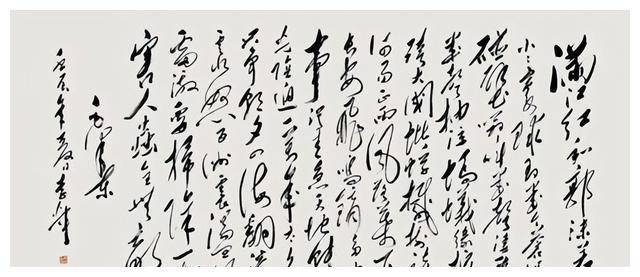 满江红和郭沫若
小小寰球有几个苍
碰壁嗡嗡叫几声凄
几声抽泣蚂蚁缘槐
夸大国蚍蜉撼树谈
何易正西风落叶下
长安飞鸣镝多
事从来急天地转
光阴迫一万年太久
只争朝夕四海翻
云水怒五洲震荡风
雷激要扫除一
害人虫全无敌
毛泽东